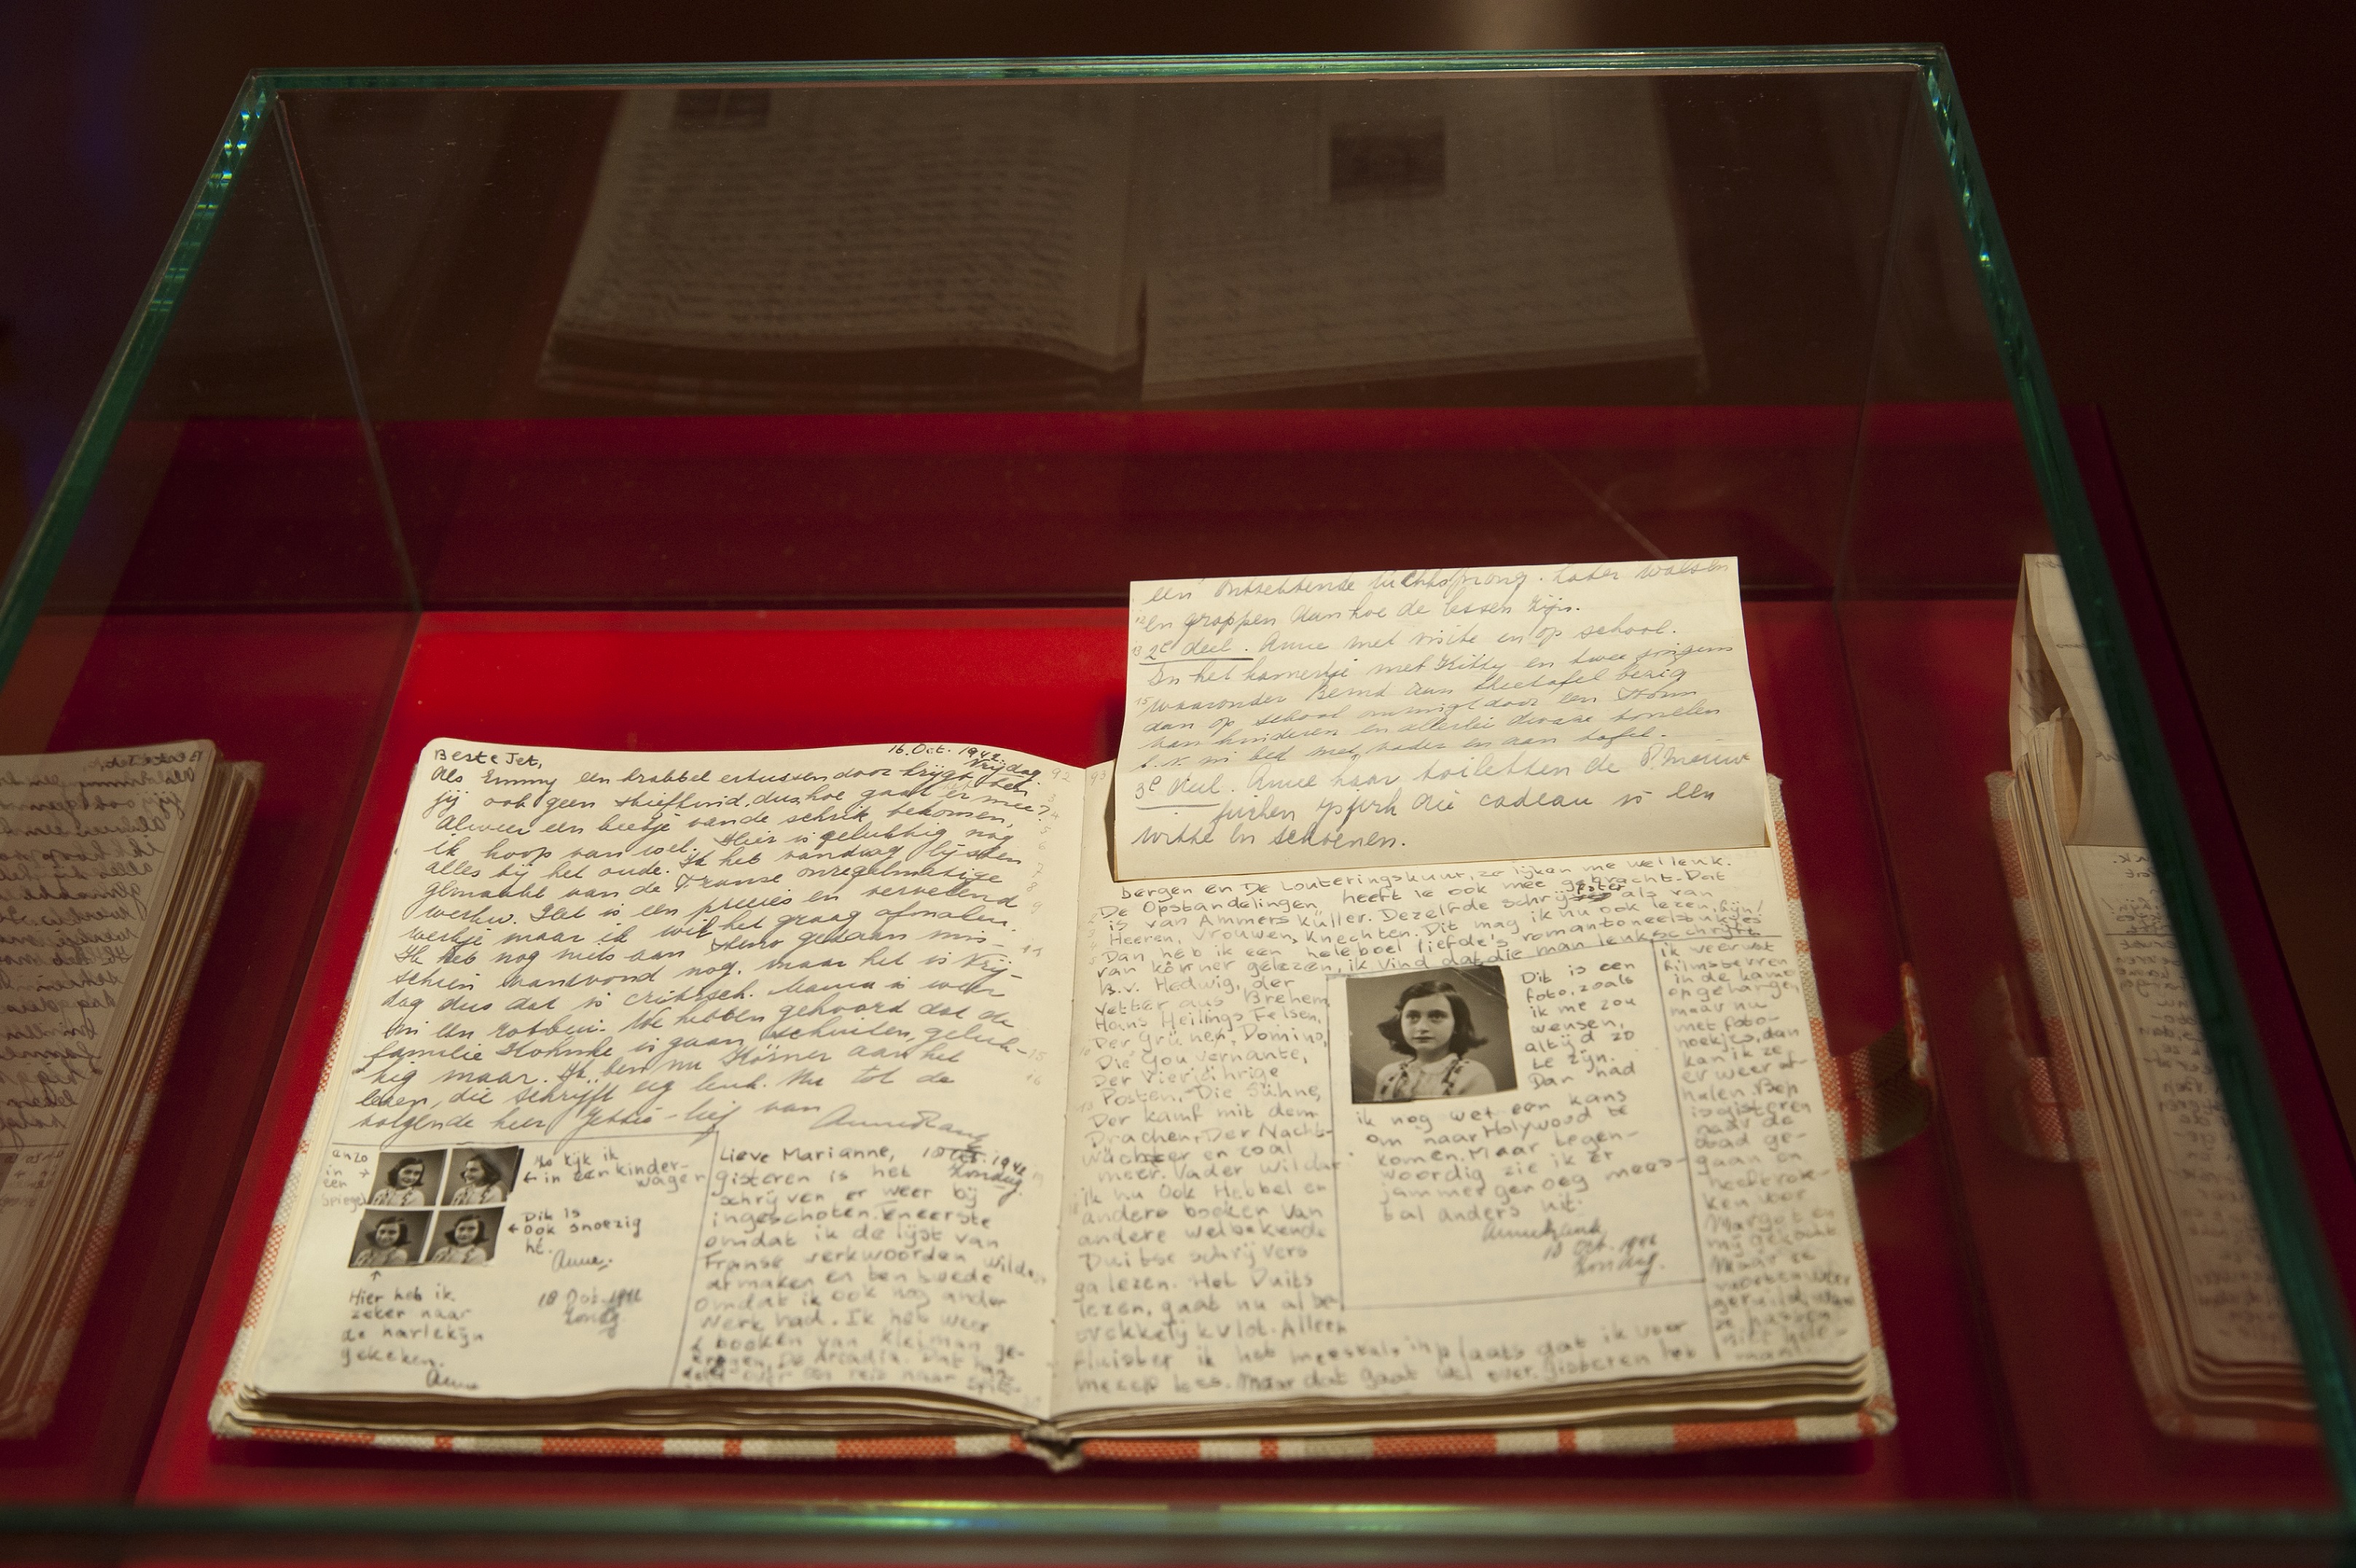 een ontzettende luchtsprong. Later walsen
en grappen dan hoe de lessen zijn.
2e deel. Anne met visite en op school.
In het kamertje met Kitty en twee jongens
waaronder Bernd aan theetafel bezig
dan op school omringd door een
van kinderen en allerlei dwaze
b.v. in bed met vader en aan tafel.
3e deel. Anne haar toiletten de
cadeau is een
witte en schoenen.
Beste Jet,
16. Oct. 1942
Vrijdag.
Als Emmy een krabbel ertussendoor krijgt, ben
jij ook geen stiefkind, dus, hoe gaat er mee?
Alweer een beetje van de schrik bekomen,
ik hoop van wel. Hier is gelukkig nog
alles bij het oude. Ik heb vandaag lijsten
gemaakt van de Franse onregelmatige
werkw. Het is een precies en vervelend
werkje maar ik wil het graag afmaken.
Ik heb nog niets aan Steno gedaan mis-
schien vanavond nog, maar het is Vrij-
dag dus dat is critisch. Mama is weer
We hebben gehoord dat de
familie is gaan schuilen, geluk-
kig maar. Ik ben nu Körner aan het
lezen, die schrijft erg leuk. Nu tot de
volgende keer Jettie-lief van
Anne Frank
anzo
in
een
spiegel
Zo kijk ik
in een kinder-
wagen
Dit is
ook snoezig
hè.
Anne.
Hier heb ik
zeker naar
de harlekijn
gekeken.
Anne
18 Oct. 1942
Zondag
Lieve Marianne,
18 Oct. 1942
Zondag.
gisteren is het
schrijven er weer bij
ingeschoten. Eneerste
omdat ik de lijst van
Franse werkwoorden wilde
afmaken en ten twede
omdat ik ook nog ander
werk had. Ik heb weer
2 boeken van Kleiman ge-
kregen, De Arcadia. Dat han-
delt over een reis naar Spits-
bergen en De Louteringskuur, zo lijken me wel leuk.
De Opstandelingen heeft ie ook mee gebracht. Dat
is van Ammers küller. Dezelfde schrijfster als van
Heeren, Vrouwen, Knechten. Dit mag ik nu ook lezen, fijn!
Dan heb ik een heleboel liefde's romantoneelstukjes
van körner gelezen, ik vind dat die man leuk schrijft
B.v. Hedwig, der
Vetter aus Brehem,
Hans Heilings Felsen,
Der Grünen, Domino,
Die Gouvernante,
Der Vierjährige
Posten, Die Sühne,
Der kamf mit dem
Drachen, Der Nacht-
wächter en zoal
meer. Vader wil dat
ik nu ook Hebbel en
andere boeken van
andere welbekende
Duitse schrijvers
ga lezen. Het Duits
lezen, gaat nu al be-
trekkelijk vlot. Alleen
fluister ik het meestals inplaats dat ik voor
mezelf lees. Maar dat gaat wel over. Gisteren heb
Dit is een
foto, zoals
ik me zou
wensen,
altijd zo
te zijn.
Dan had
ik nog wel een kans
om naar Holywood te
komen. Maar tegen-
woordig zie ik er
jammer genoeg mees-
tal anders uit.
Annefrank.
18 Oct. 1942
Zondag.
ik voor wat
filmsterren
in de kamer
opgehangen
maar nu
met foto-
hoekjes, dan
kan ik ze
er weer af-
halen. Bep
is gisteren
naar de
stad ge-
gaan en
heeft rok-
ken voor
Margot en
mij gekocht
Maar ze
moeten weer
geruild, want
ze passen
niet hele-
maal.